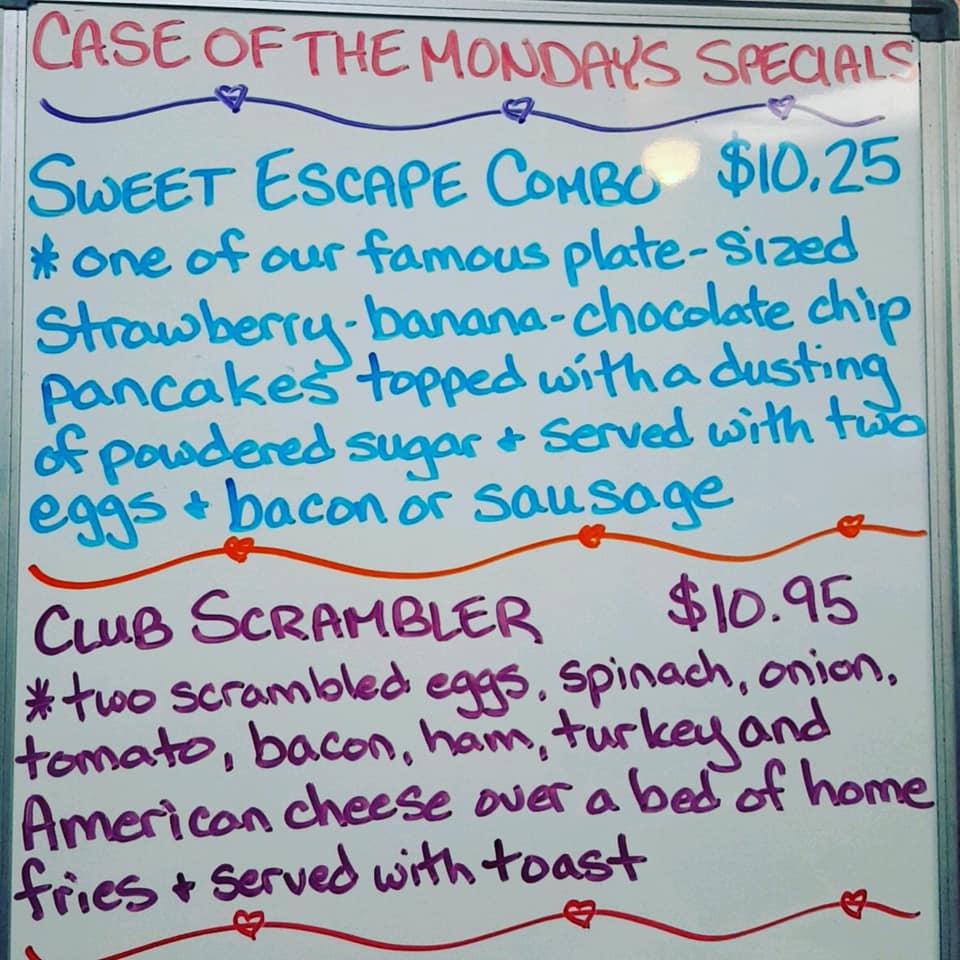 CASE OF THE MONDAYS SPECIALS
SWEET ESCAPE COMBO $10.25
* one of our famous plate-sized
strawberry-banana-chocolate chip
pancakes topped with a dusting
of powdered sugar + served with two
eggs + bacon or sausage
CLUB SCRAMBLER $10.95
* two scrambled eggs, spinach, onion,
tomato, bacon, ham, turkey and
American cheese over a bed of home
fries + served with toast